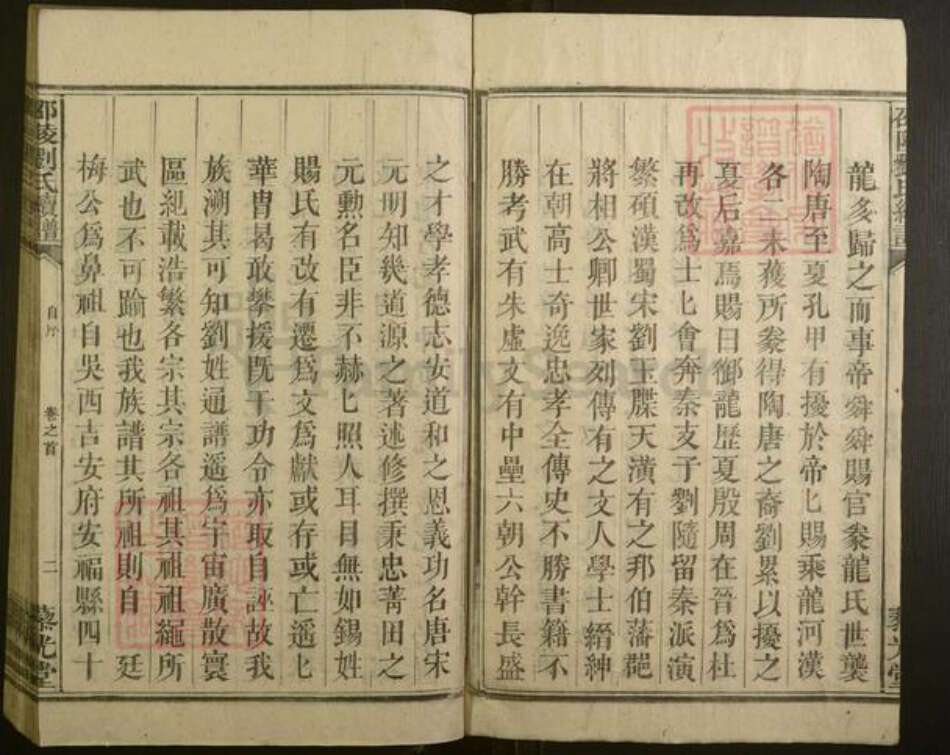 龍多歸之而事帝舜舜賜官豢龍氏世襲
陶唐至夏孔甲有擾於帝匕賜乘龍河漢
各二未獲所豢得陶唐之裔劉累以擾之
夏后嘉焉賜曰御龍歷夏殷周在晉爲杜
再改爲士匕會奔秦支子劉隨留秦派演
繁碩漢蜀宋劉玉牒天潢有之邦伯藩
將相公卿世家列傳有之文人學士縉紳
在朝高士奇逸忠孝全傳史不勝書籍不
勝考武有朱虛文有中壘六朝公幹長盛
之才學孝德志安道和之恩義功名唐宋
元明知幾道源之著述修撰秉忠菁田之
元勳名臣非不赫匕照人耳目無如錫姓
賜氏有改有遷爲文爲獻或存或亡遥匕
華胄曷敢攀援旣干功令亦取自誣故我
族溯其可知劉姓通譜遥爲宇宙廣散寰
區紀載浩繁各宗其宗各祖其祖繩所
武也不可踰也我族譜其所祖則自廷
梅公爲鼻祖自吳西吉安府安福縣四十
邵陵劉氏續譜
自序
卷之首
二
藜光堂